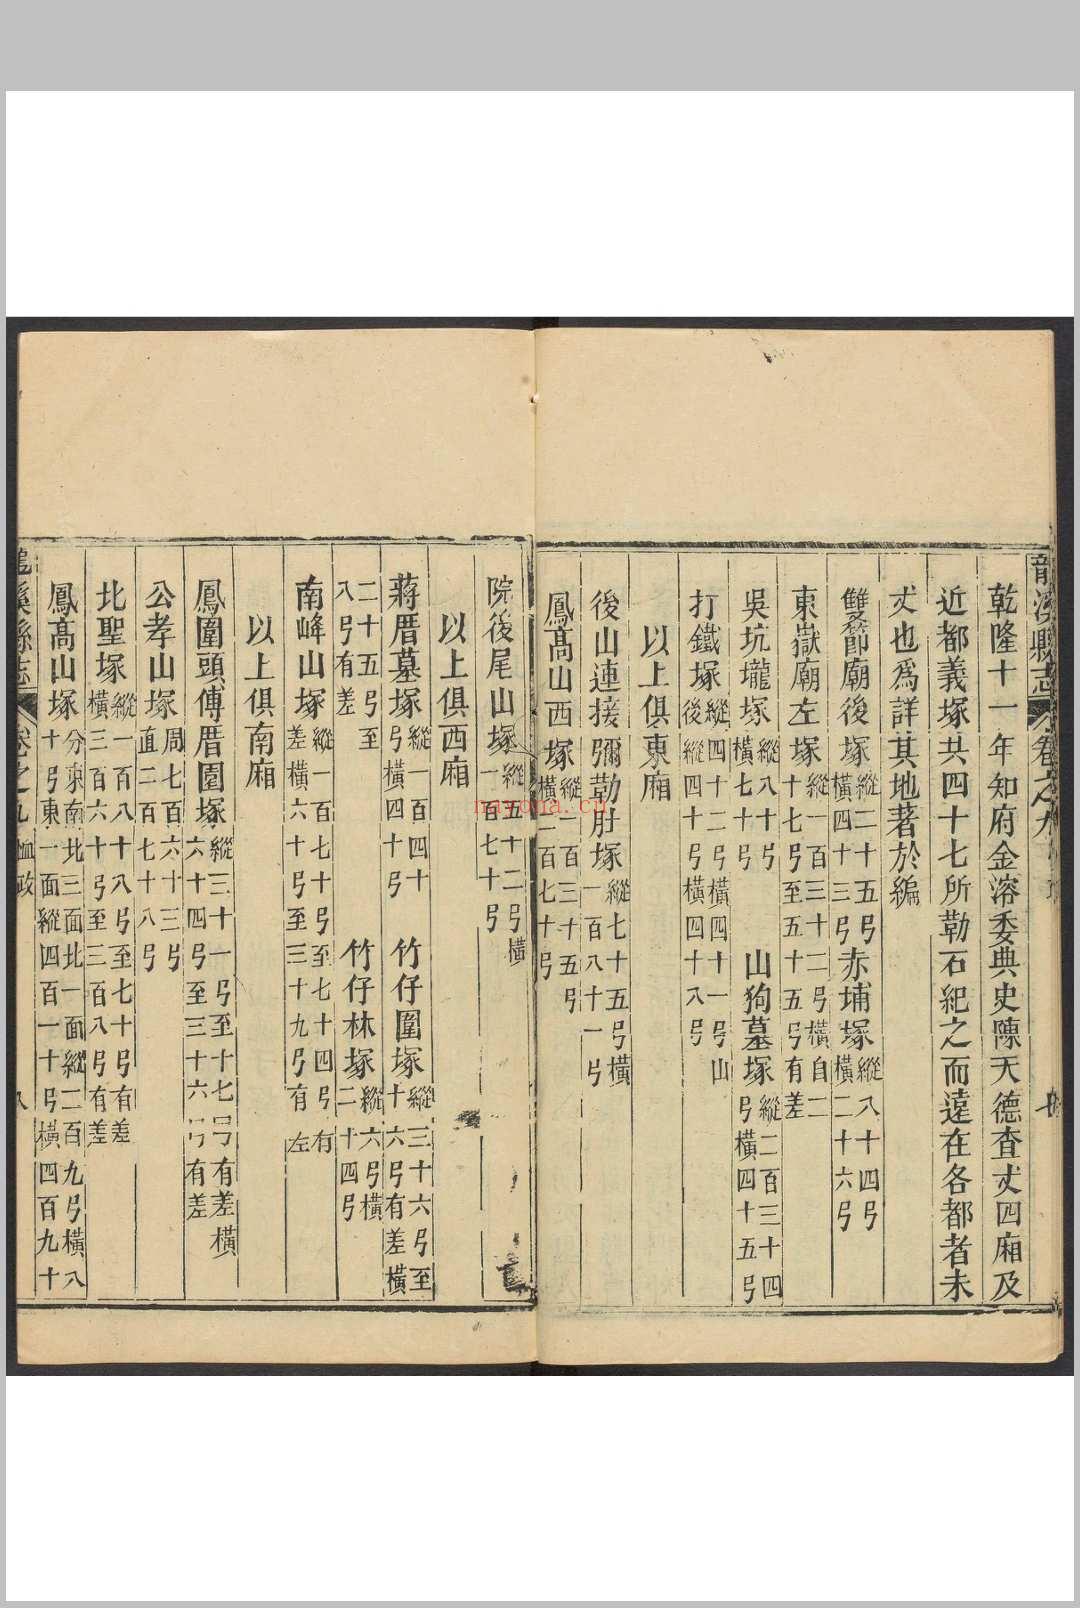 龍溪縣志
卷之九
乾隆十一年知府金溶委典史陳天德查丈四廂及
近都義塚共四十七所勒石紀之而遠在各都者未
丈也爲詳其地著於編
雙節廟後塚縱二十五弓橫四十三弓赤埔塚縱八十四弓橫二十六弓
東嶽廟左塚縱一百三十二弓橫自二十七弓至五十五弓有差
吳坑壠塚縱八十弓橫七十弓山狗墓塚縱二百三十四弓橫四十五弓
打鐵塚縱四十二弓橫四十一弓山後縱四十弓橫四十八弓
以上俱東廂
後山連接彌勒肚塚縱七十五弓橫一百八十一弓
鳳髙山西塚縱二百三十五弓橫一百七十弓
院後尾山塚縱五十二弓橫一百七十弓
以上俱西廂
蔣厝墓塚縱一百四十弓橫四十弓竹仔圍塚縱三十六弓至十六弓有差橫
二十五弓至八弓有差竹仔林塚縱六弓橫二十四弓
南峰山塚縱一百七十弓至七十四弓有差橫六十弓至三十九弓有左
以上俱南廂
鳳圍頭傅厝園塚縱三十一弓至十七弓有差橫六十四弓至三十六弓有差
公孝山塚周七百六十三弓直二百七十八弓
北聖塚縱一百八十八弓至七十弓有差橫三百六十弓至三百八弓有差
鳳髙山塚分東南北三面北一面縱二百九弓橫八十弓東一面縱四百一十弓橫四百九十
龍溪縣志
卷之九
恤政